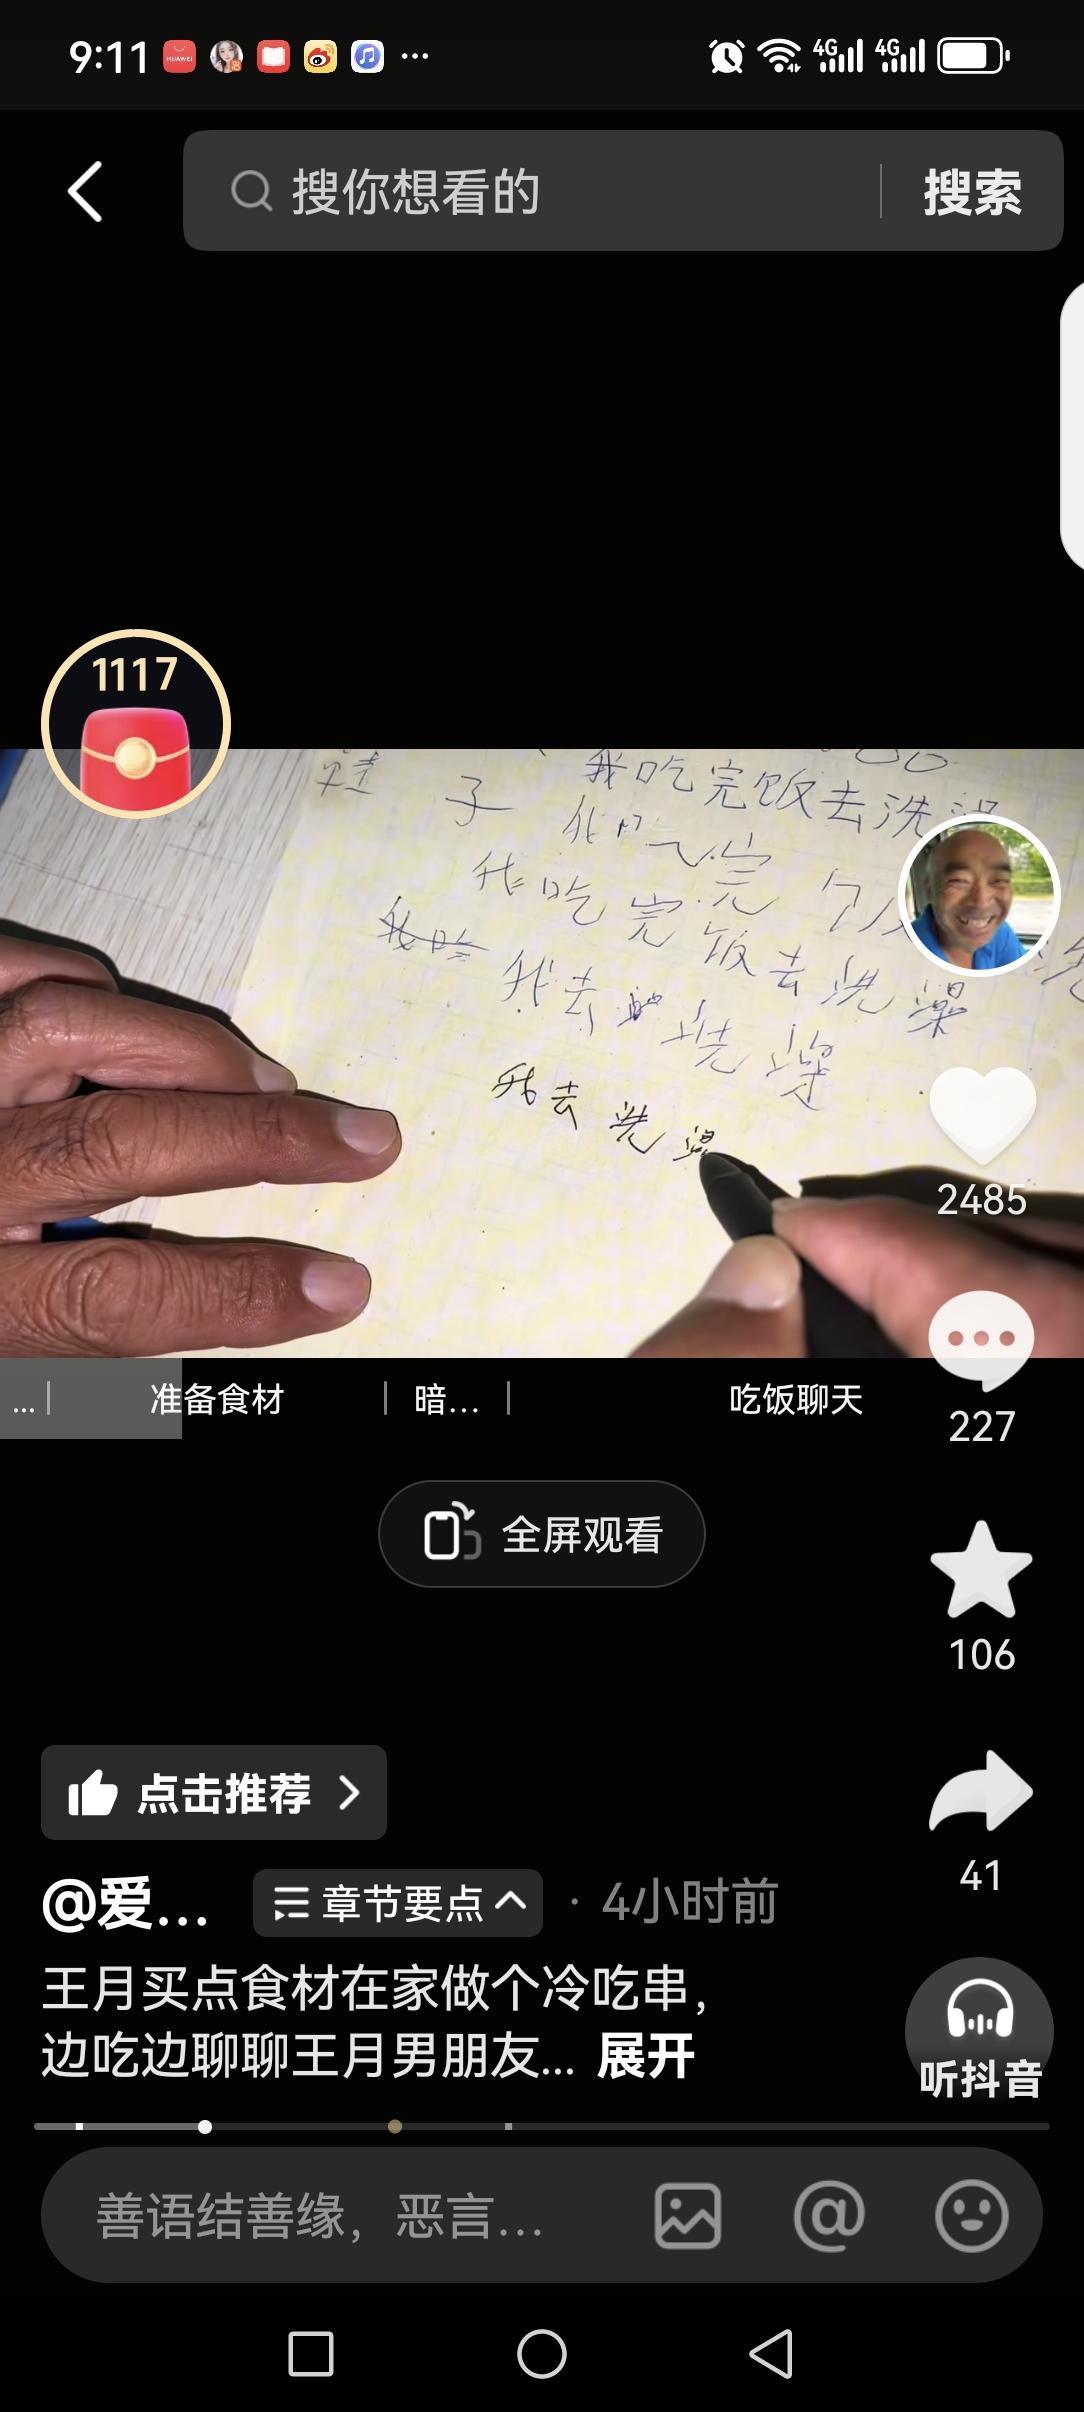 9:11
HUAWEI
4G
4G
搜你想看的
搜索
1117
我吃完饭去洗澡
子
我吃完
我吃完饭去洗澡
我吃
我去洗澡
我去洗澡
2485
227
... 准备食材 暗... 吃饭聊天
全屏观看
106
点击推荐
41
@爱... 章节要点 · 4小时前
王月买点食材在家做个冷吃串，
边吃边聊聊王月男朋友... 展开
听抖音
善语结善缘，恶言...
@